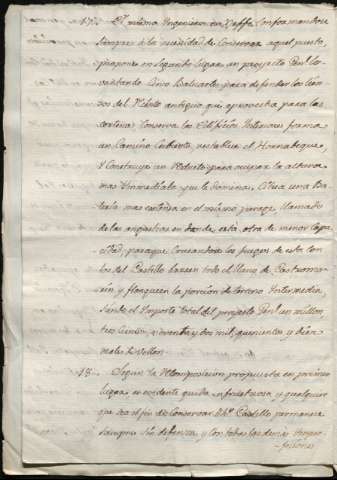 17. El mismo Ingeniero en Xeffe, conformandose
siempre á la necesidad de Conservar aquel puesto,
propone en segundo lugar, un proyecto Gral. le-
vantando Cinco Baluartes para defender los lien-
zos del Reduto antiguo que aprovecha para las
cortinas: Conserva los Edificios Interiores forma
un Camino Cubierto, restablece el Hornabeque,
y Construye un Reducto para ocupar la altura
mas Inmediata, que le domina, Situa una Ba-
teria mas extensa en el mismo parage, llamado
de las angustias en donde está, otra de menor Capa-
cidad, para que Cruzandose los fuegos de esta con
los del Castillo bassen todo el llano de Castroma-
rin y flanqueen la porcion de terreno Intermedia,
siendo el Importe total del proyecto Gral. un millon
tres Cientos, noventa y dos mil, quinientos y diez
reales de Vellon.
18. Segun la recomposicion propuesta en primer
lugar, es evidente queda infructuosa, y qualquiera
que sea el fin de Conservar dho. Castillo permanece
siempre sin defensa, y con todas las demas Imper-
fecciones